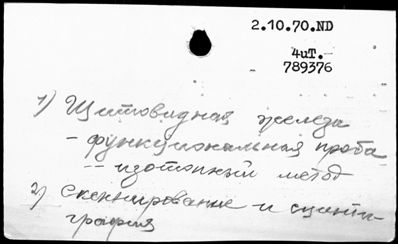 2.10.70.ND
4uT.-
789376
1) Щитовидная железа
- функциональная проба
-- изотопный метод
2) сканирование и сцинти-
графия